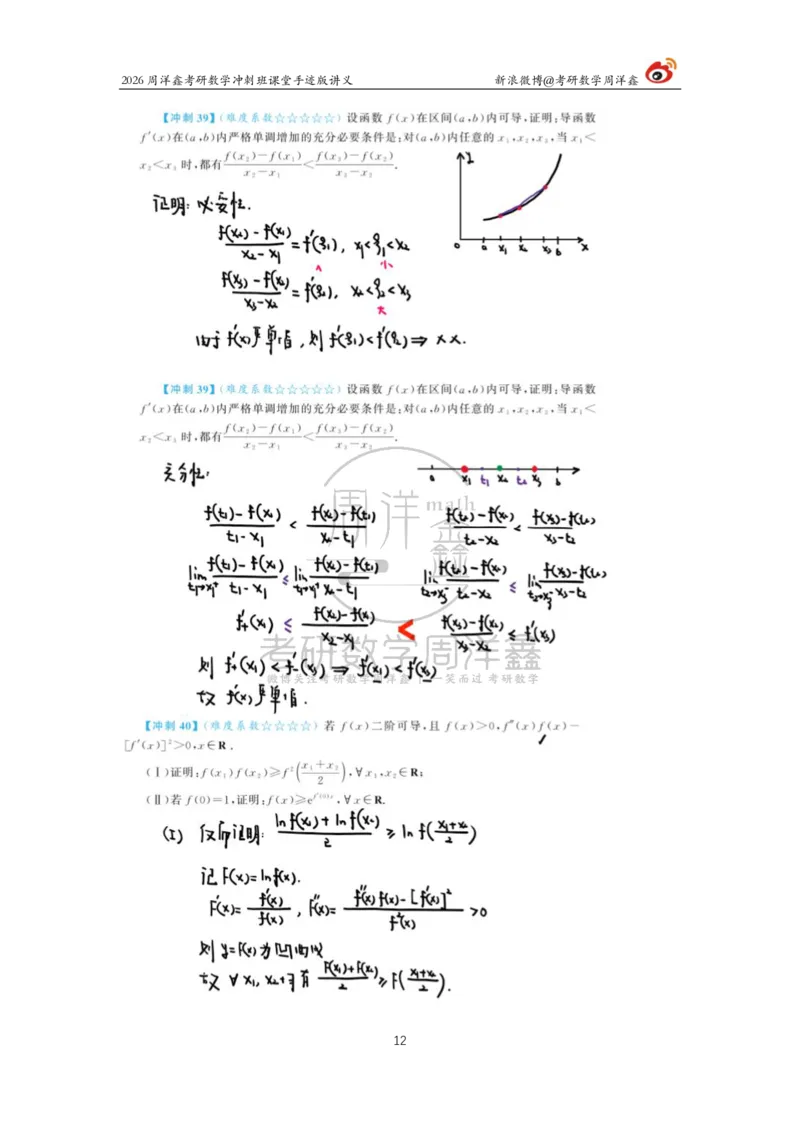 2026 周洋鑫考研数学冲刺班课堂手迹版讲义 新浪微博@考研数学周洋鑫
【冲刺 39】(难度系数☆☆☆☆☆) 设函数 f(x)在区间(a,b)内可导,证明:导函数
f′(x)在(a,b)内严格单调增加的充分必要条件是:对(a,b)内任意的 x₁,x₂,x₃,当 x₁<
x₂<x₃ 时,都有 (f(x₂)-f(x₁))/(x₂-x₁) < (f(x₃)-f(x₂))/(x₃-x₂).
证明: 必要性.
(f(x₂)-f(x₁))/(x₂-x₁) = f′(ξ₁), x₁<ξ₁<x₂
小
(f(x₃)-f(x₂))/(x₃-x₂) = f′(ξ₂), x₂<ξ₂<x₃
大
由于 f′(x)严单增, 则 f′(ξ₁)<f′(ξ₂) ⇒ xx.
I
0 a x₁ x₂ x₃ b x
【冲刺 39】(难度系数☆☆☆☆☆) 设函数 f(x)在区间(a,b)内可导,证明:导函数
f′(x)在(a,b)内严格单调增加的充分必要条件是:对(a,b)内任意的 x₁,x₂,x₃,当 x₁<
x₂<x₃ 时,都有 (f(x₂)-f(x₁))/(x₂-x₁) < (f(x₃)-f(x₂))/(x₃-x₂).
充分性:
a x₁ t₁ x₂ t₂ x₃ b
(f(t₁)-f(x₁))/(t₁-x₁) < (f(x₂)-f(t₁))/(x₂-t₁) (f(t₂)-f(x₂))/(t₂-x₂) < (f(x₃)-f(t₂))/(x₃-t₂)
lim_{t₁→x₁⁺} (f(t₁)-f(x₁))/(t₁-x₁) ≤ lim_{t₁→x₁⁺} (f(x₂)-f(t₁))/(x₂-t₁) lim_{t₂→x₃⁻} (f(t₂)-f(x₂))/(t₂-x₂) ≤ lim_{t₂→x₃⁻} (f(x₃)-f(t₂))/(x₃-t₂)
f′₊(x₁) ≤ (f(x₂)-f(x₁))/(x₂-x₁) < (f(x₃)-f(x₂))/(x₃-x₂) ≤ f′₋(x₃)
则 f′₊(x₁)<f′₋(x₃) ⇒ f′(x₁)<f′(x₃)
故 f′(x)严单增.
周洋鑫 math
考研数学周洋鑫
微博关注考研数学周洋鑫 一笑而过 考研数学
【冲刺 40】(难度系数☆☆☆☆) 若 f(x)二阶可导,且 f(x)>0,f″(x)f(x)-
[f′(x)]²>0,x∈R.
(Ⅰ)证明:f(x₁)f(x₂)≥f²((x₁+x₂)/2),∀x₁,x₂∈R;
(Ⅱ)若 f(0)=1,证明:f(x)≥e^{f′(0)x},∀x∈R.
(I) 仅需证明: (ln f(x₁)+ln f(x₂))/2 ≥ ln f((x₁+x₂)/2)
记 F(x)=ln f(x).
F′(x)= f′(x)/f(x), F″(x)= (f″(x)f(x)-[f′(x)]²)/f²(x) >0
则 y=F(x)为凹曲线
故 ∀x₁, x₂ 有 (F(x₁)+F(x₂))/2 ≥ F((x₁+x₂)/2).
12